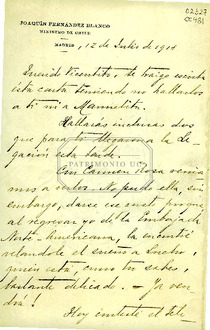 02327
00481
JOAQUÍN FERNÁNDEZ BLANCO
MINISTRO DE CHILE
MADRID
12 de Julio de 1914
Querid Vicentito, te traigo escrita
esta carta temiendo no hallarlos
a ti ni a Manuelita.
Hallarás inclusas dos
que para ti llegaron a la Le-
gación esta tarde.
Con Carmen Rosa venía
mos a verlos. No pudo ella, sin
embargo, darse ese gusto porque
al regresar yo de la Embajada
Norte-Americana, la encontré
velandole el sueño a Lucho,
quien está, como tu sabes,
bastante delicado. — Ya ven-
drá!
Hoy intenté el tele-
PATRIMONIO UC